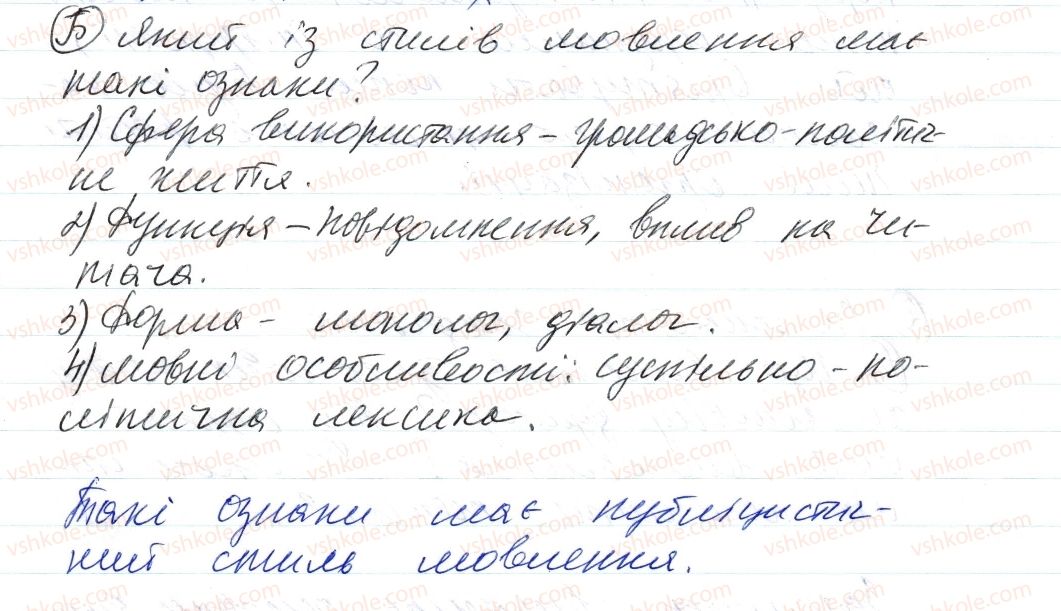 Б Який із стилів мовлення має
такі ознаки?
1) Сфера використання – громадсько-політич-
не життя.
2) Функція – повідомлення, вплив на чи-
тача.
3) Форма – монолог, діалог.
4) мовні особливості: суспільно-по-
літична лексика.
Такі ознаки має публіцистич-
ний стиль мовлення.